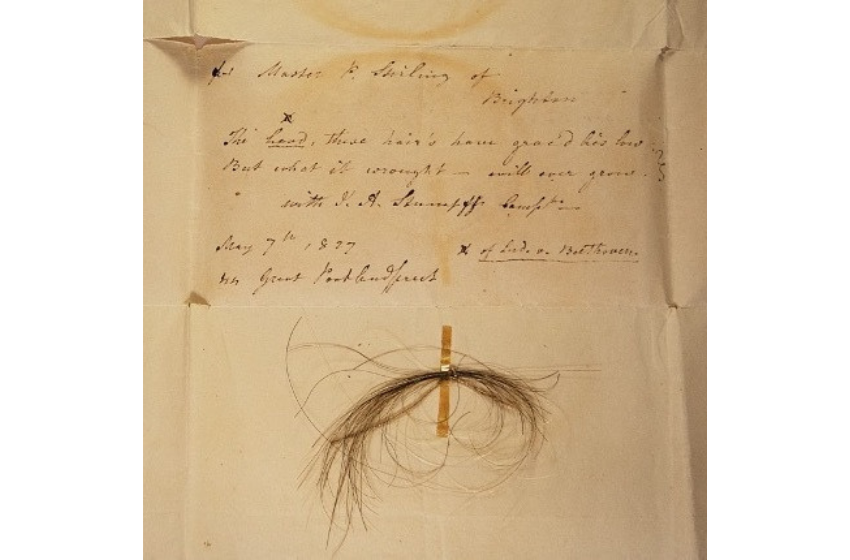 for Master P. Stirling of
Brighton
x
The head, these hair's have grac'd lies low
But what it wrought — will ever grow.
with J. A. Stumpff
May 7th 1827
Great Portland street
x of Ludv. v. Beethoven.